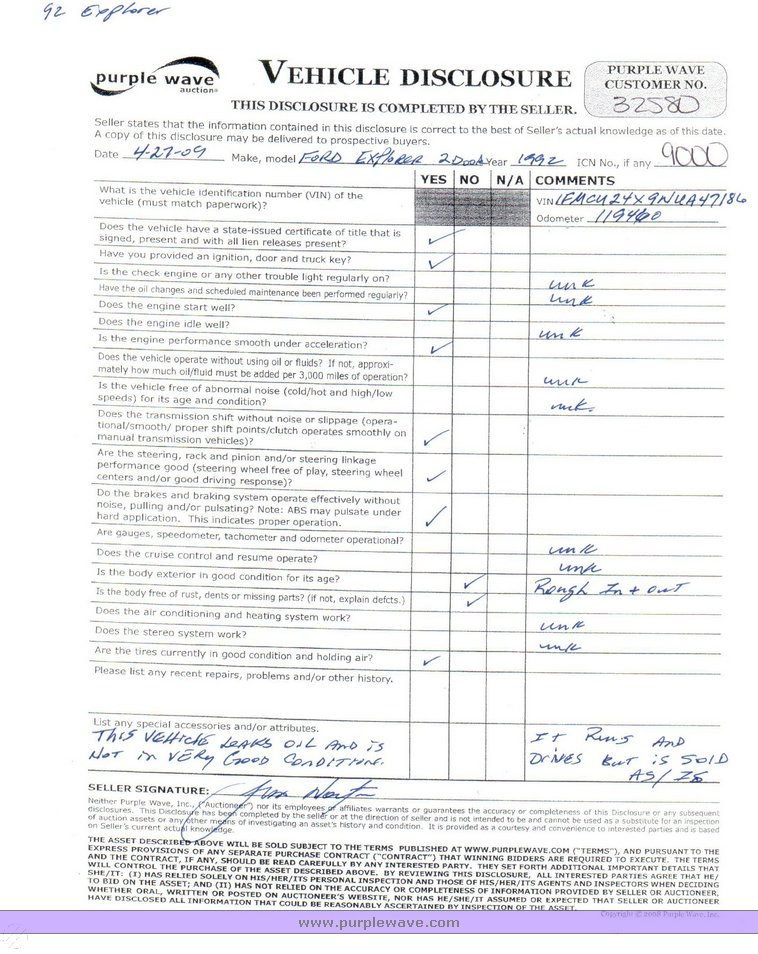 92 Explorer
purple wave
auction®
VEHICLE DISCLOSURE
PURPLE WAVE
CUSTOMER NO.
32580
THIS DISCLOSURE IS COMPLETED BY THE SELLER.
Seller states that the information contained in this disclosure is correct to the best of Seller's actual knowledge as of this date.
A copy of this disclosure may be delivered to prospective buyers.
Date 4-27-09 Make, model FORD EXPLORER 2 Door Year 1992 ICN No., if any 9000
YES NO N/A COMMENTS
What is the vehicle identification number (VIN) of the
vehicle (must match paperwork)?
VIN 1FMCU24X9NUA47186
Odometer 119460
Does the vehicle have a state-issued certificate of title that is
signed, present and with all lien releases present? ✓
Have you provided an ignition, door and truck key? ✓
Is the check engine or any other trouble light regularly on? unk
Have the oil changes and scheduled maintenance been performed regularly? unk
Does the engine start well? ✓
Does the engine idle well? unk
Is the engine performance smooth under acceleration? ✓
Does the vehicle operate without using oil or fluids? If not, approxi-
mately how much oil/fluid must be added per 3,000 miles of operation? unk
Is the vehicle free of abnormal noise (cold/hot and high/low
speeds) for its age and condition? unk.
Does the transmission shift without noise or slippage (opera-
tional/smooth/ proper shift points/clutch operates smoothly on
manual transmission vehicles)? ✓
Are the steering, rack and pinion and/or steering linkage
performance good (steering wheel free of play, steering wheel
centers and/or good driving response)? ✓
Do the brakes and braking system operate effectively without
noise, pulling and/or pulsating? Note: ABS may pulsate under
hard application. This indicates proper operation. ✓
Are gauges, speedometer, tachometer and odometer operational? unk
Does the cruise control and resume operate? unk
Is the body exterior in good condition for its age? ✓ Rough In + out
Is the body free of rust, dents or missing parts? (if not, explain defcts.) ✓
Does the air conditioning and heating system work? unk
Does the stereo system work? unk
Are the tires currently in good condition and holding air? ✓
Please list any recent repairs, problems and/or other history.
List any special accessories and/or attributes.
This VEHICLE LEAKS OIL AND is
Not in VERY Good CONDITION.
It Runs AND
DRIVES But is SOLD
AS/IS
SELLER SIGNATURE:
Neither Purple Wave, Inc., ("Auctioneer") nor its employees or affiliates warrants or guarantees the accuracy or completeness of this Disclosure or any subsequent
disclosures. This Disclosure has been completed by the seller or at the direction of seller and is not intended to be and cannot be used as a substitute for an inspection
of auction assets or any other means of investigating an asset's history and condition. It is provided as a courtesy and convenience to interested parties and is based
on Seller's current actual knowledge.
THE ASSET DESCRIBED ABOVE WILL BE SOLD SUBJECT TO THE TERMS PUBLISHED AT WWW.PURPLEWAVE.COM ("TERMS"), AND PURSUANT TO THE
EXPRESS PROVISIONS OF ANY SEPARATE PURCHASE CONTRACT ("CONTRACT") THAT WINNING BIDDERS ARE REQUIRED TO EXECUTE. THE TERMS
AND THE CONTRACT, IF ANY, SHOULD BE READ CAREFULLY BY ANY INTERESTED PARTY. THEY SET FORTH ADDITIONAL IMPORTANT DETAILS THAT
WILL CONTROL THE PURCHASE OF THE ASSET DESCRIBED ABOVE. BY REVIEWING THIS DISCLOSURE, ALL INTERESTED PARTIES AGREE THAT HE/
SHE/IT: (I) HAS RELIED SOLELY ON HIS/HER/ITS PERSONAL INSPECTION AND THOSE OF HIS/HER/ITS AGENTS AND INSPECTORS WHEN DECIDING
TO BID ON THE ASSET; AND (II) HAS NOT RELIED ON THE ACCURACY OR COMPLETENESS OF INFORMATION PROVIDED BY SELLER OR AUCTIONEER,
WHETHER ORAL, WRITTEN OR POSTED ON AUCTIONEER'S WEBSITE, NOR HAS HE/SHE/IT ASSUMED OR EXPECTED THAT SELLER OR AUCTIONEER
HAVE DISCLOSED ALL INFORMATION THAT COULD BE REASONABLY ASCERTAINED BY INSPECTION OF THE ASSET.
Copyright © 2008 Purple Wave, Inc.
www.purplewave.com